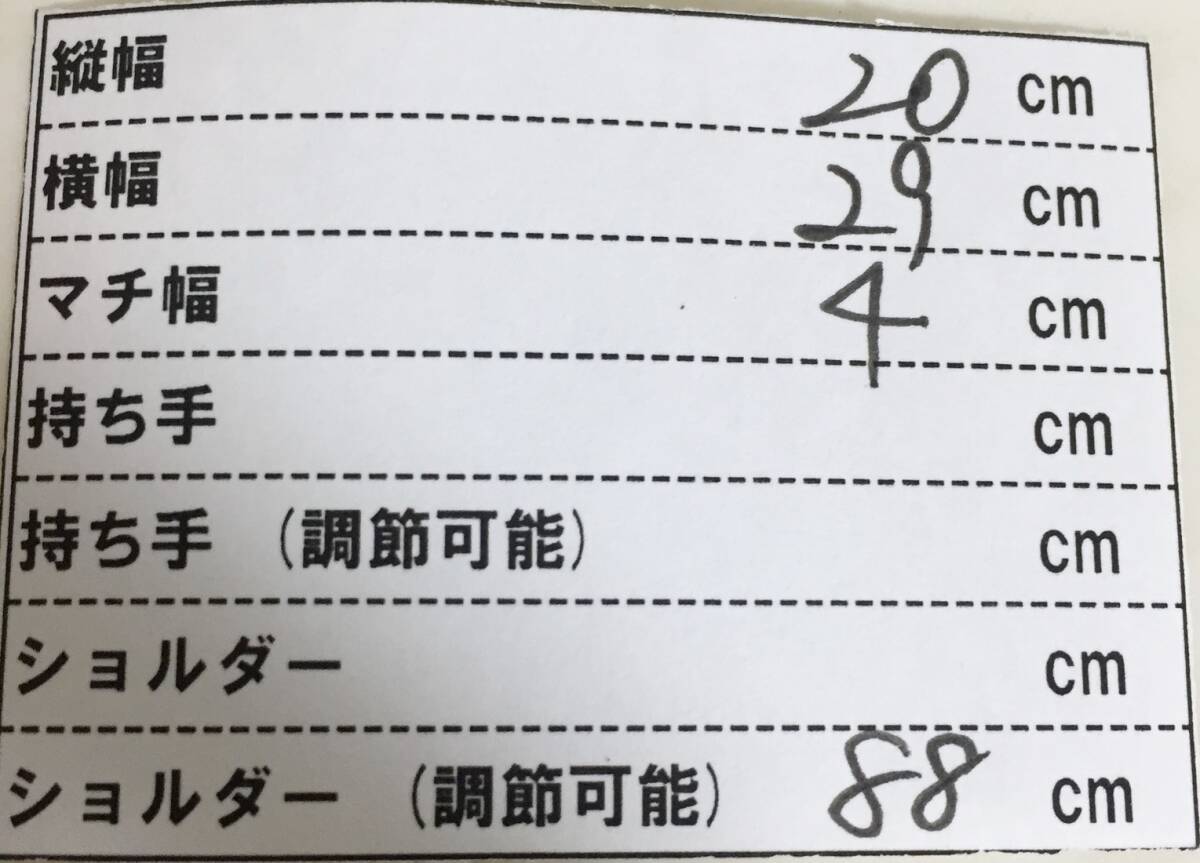 縦幅 20 cm
横幅 29 cm
マチ幅 4 cm
持ち手 cm
持ち手 (調節可能) cm
ショルダー cm
ショルダー (調節可能) 88 cm